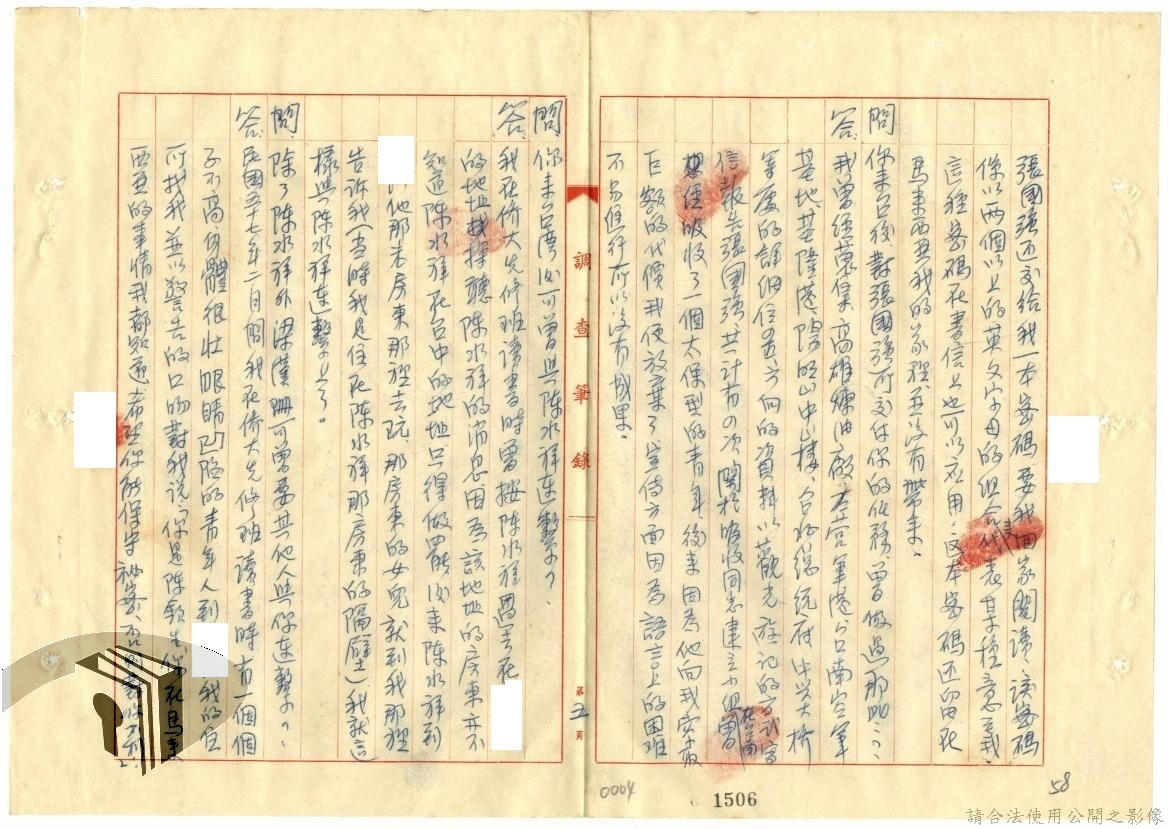 張國強还交給我一本密碼要我回家閱讀、該密碼
係以兩個以上的英文字母的組合代表某種意義、
這種密碼在書信上也可以应用、这本密碼还留在
馬来西亞我的家裡、並沒有帶来。
問 你来台後對張國強所交付你的任務曾做過那些？
答、我曾經蒐集高雄煉油廠、左营軍港、台南空軍
基地、基隆港、陽明山中山樓、台北総統府、中兴大橋
等處的詳細位置方向的資料以觀光遊記的方式寫
信報告張國強共計有四次關於吸收同志建立小组曾在台南
經吸收了一個太保型的青年後来因為他向我索取
巨額的代價我便放棄了宣传方面因為語言上的困难
不易進行所以沒有成果。
問 你来台灣後可曾與陳水祥連繫？
答、我在僑大先修班讀書時曾按陳水祥
的地址找探聽陳水祥的消息因為該地址的房東亦不
知道陳水祥在台中的地址只得做罷後来陳水祥到
他那未房東那裡去玩、那房東的女兒就到我那裡
告訴我（当時我是住在陳水祥那房東的隔壁）我就這
樣與陳水祥連繫上了。
問、除了陳水祥外梁漢珊可曾要其他人與你連繫？
答、民國五十七年二月間我在僑大先修班讀書時有一個個
子不高、身體很壯眼睛凹陷的青年人到 我的住
所找我並以警告的口吻對我说：你是陳欽生你在馬来
西亞的事情我都知道希望你能保守秘密、否則
調查筆錄
第五頁
0004
1506
58
請合法使用公開之影像